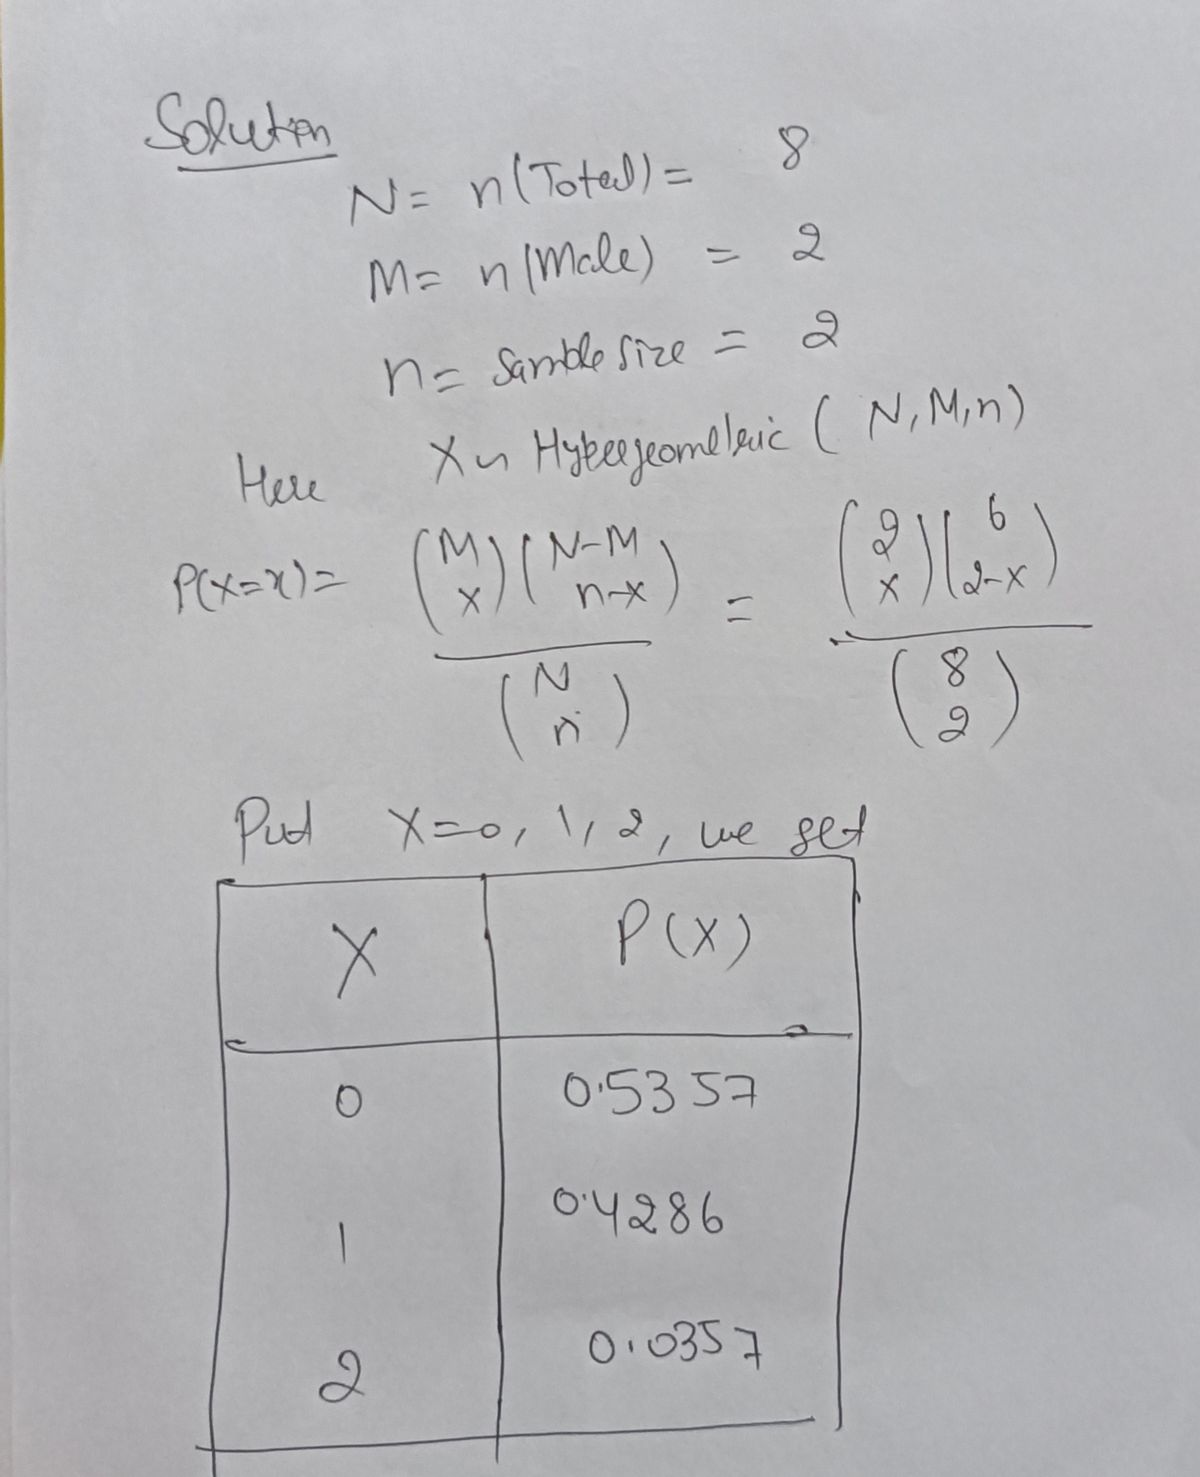 Solution
N= n(Total) = 8
M= n(Male) = 2
n= Samble size = 2
Here X ~ Hypergeometric (N,M,n)
P(X=x)= (M x)(N-M n-x) / (N n) = (2 x)(6 2-x) / (8 2)
Put X=0, 1, 2, we get
X P(X)
0 0.5357
1 0.4286
2 0.0357